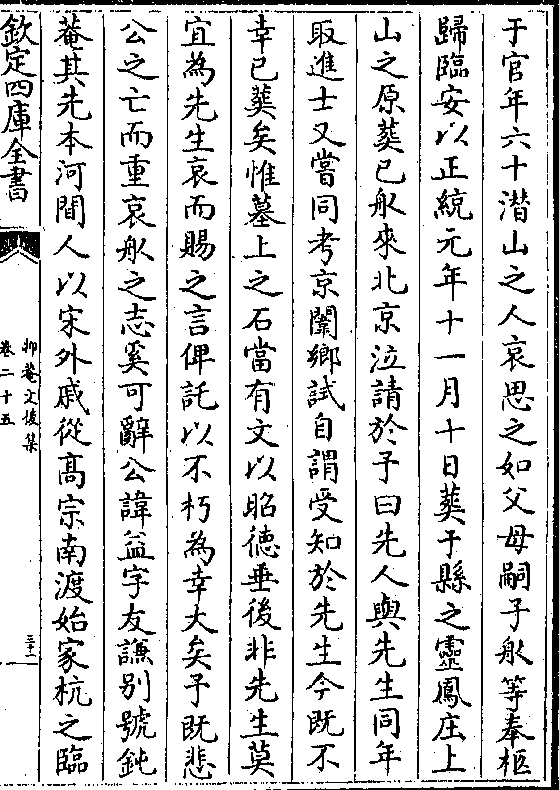 于官年六十潜山之人哀思之如父母嗣子舟等奉柩
歸臨安以正統元年十一月十日葬于縣之靈鳳庄上
山之原葬已舟來北京泣請於予曰先人與先生同年
取進士又嘗同考京闈鄉試自謂受知於先生今既不
幸已葬矣惟墓上之石當有文以昭徳垂後非先生莫
宜為先生哀而賜之言俾託以不朽為幸大矣予既悲
公之亡而重哀舟之志奚可辭公諱益字友謙别號鈍
菴其先本河間人以宋外戚從髙宗南渡始家杭之臨
欽定四庫全書
抑菴文後集
卷二十五
三十一